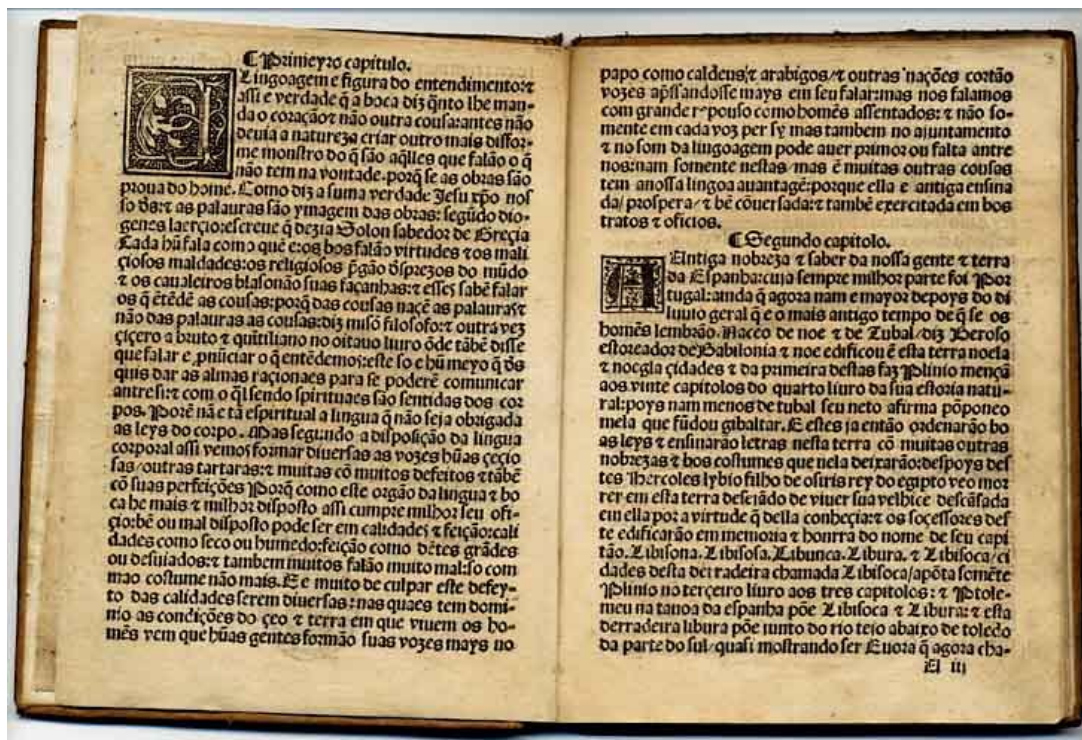 ¶ Primeyro capitulo.
Lingoagem e figura do entendimento:⁊
assi e verdade q̃ a boca diz q̃nto lhe man-
da o coração⁊ não outra cousa:antes não
deuia a natureza criar outro mais disfor-
me monstro do q̃ são aq̃lles que falão o q̃
não tem na vontade.porq̃ se as obras são
proua do homẽ. Como diz a suma verdade Jesu xp̃o nos
so d̃s:⁊ as palauras são ymagem das obras: segũdo dio-
genes laerçio:escreue q̃ dezia Solon sabedor de Greçia
Cada hũ fala como quẽ e:os bos falão virtudes ⁊os mali
çiosos maldades:os religiosos p̃gão d̃sprezos do mũdo
⁊ os caualeiros blasonão suas façanhas:⁊ esses sabẽ falar
os q̃ ẽtẽdẽ as cousas:porq̃ das cousas naçẽ as palauras⁊
não das palauras as cousas:diz misõ filosofo:⁊ outra vez
çiçero a bruto ⁊ quĩtiliano no oitauo liuro õde tãbẽ disse
que falar e ,pnũciar o q̃ entẽdemos:este so e hũ meyo q̃ d̃s
quis dar as almas raçionaes para se poderẽ comunicar
antresi:⁊ com o q̃l sendo spirituaes são sentidas dos cor
pos. Porẽ nã e tã espiritual a lingua q̃ não seja obrigada
as leys do corpo. Mas segundo a disposição da lingua
corporal assi vemos formar diuersas as vozes hũas çeçio
sas/outras tartaras:⁊ muitas cõ muitos defeitos ⁊tãbẽ
cõ suas perfeições Porq̃ como este orgão da lingua ⁊ bo
ca he mais ⁊ milhor disposto assi cumpre milhor seu ofi-
çio:bẽ ou mal disposto pode ser em calidades ⁊ feição:cali
dades como seco ou humedo:feição como dẽtes grãdes
ou desuiados:⁊ tambem muitos falão muito mal:so com
mao costume não mais. E e muito de culpar este defey-
to das calidades serem diuersas:nas quaes tem domi-
nio as condições do çeo ⁊ terra em que viuem os ho-
mẽs vem que hũas gentes formão suas vozes mays no
papo como caldeus:⁊ arabigos/⁊ outras nações cortão
vozes ap̃ssandosse mays em seu falar:mas nos falamos
com grande repouso como homẽs assentados: ⁊ não so-
mente em cada voz per sy mas tambem no ajuntamento
⁊ no som da lingoagem pode auer primor ou falta antre
nos:nam somente nestas/mas ẽ muitas outras cousas
tem anossa lingoa auantagẽ:porque ella e antiga ensina
da/prospera/⁊ bẽ cõuersada:⁊ tambẽ exercitada em bos
tratos ⁊ oficios.
¶ Segundo capitolo.
A Antiga nobreza ⁊ saber da nossa gente ⁊ terra
da Espanha:cuja sempre milhor parte foi Por
tugal:ainda q̃ agora nam e mayor depoys do di
luuio geral q̃ e o mais antigo tempo de q̃ se os
homẽs lembrão. Naceo de noe ⁊ de Tubal/diz Beroso
estoreador de Babilonia ⁊ noe edificou ẽ esta terra noela
⁊ noegla çidades ⁊ da primeira destas faz Plinio mençã
aos vinte capitolos do quarto liuro da sua estoria natu-
ral:poys nam menos de tubal seu neto afirma põponeo
mela que fũdou gibaltar. E estes ja então ordenarão bo
as leys ⁊ ensinarão letras nesta terra cõ muitas outras
nobrezas ⁊ bos costumes que nela deixarão:despoys des
tes Hercoles lybio filho de osiris rey do egipto veo mor
rer em esta terra desejãdo de viuer sua velhice descãsada
em ella por a virtude q̃ della conheçia:⁊ os soçessores des
te edificarão em memoria ⁊ honrra do nome de seu capi
tão. Libisona. Libisosa. Libunca. Libura. ⁊ Libisoca/ci
dades desta derradeira chamada Libisoca/apõta somẽte
Plinio no terçeiro liuro aos tres capitolos: ⁊ Ptole-
meu na tauoa da espanha põe Libisoca ⁊ Libura:⁊ esta
derradeira libura põe junto do rio tejo abaixo de toledo
da parte do sul/quasi mostrando ser Euora q̃ agora cha-
A iij